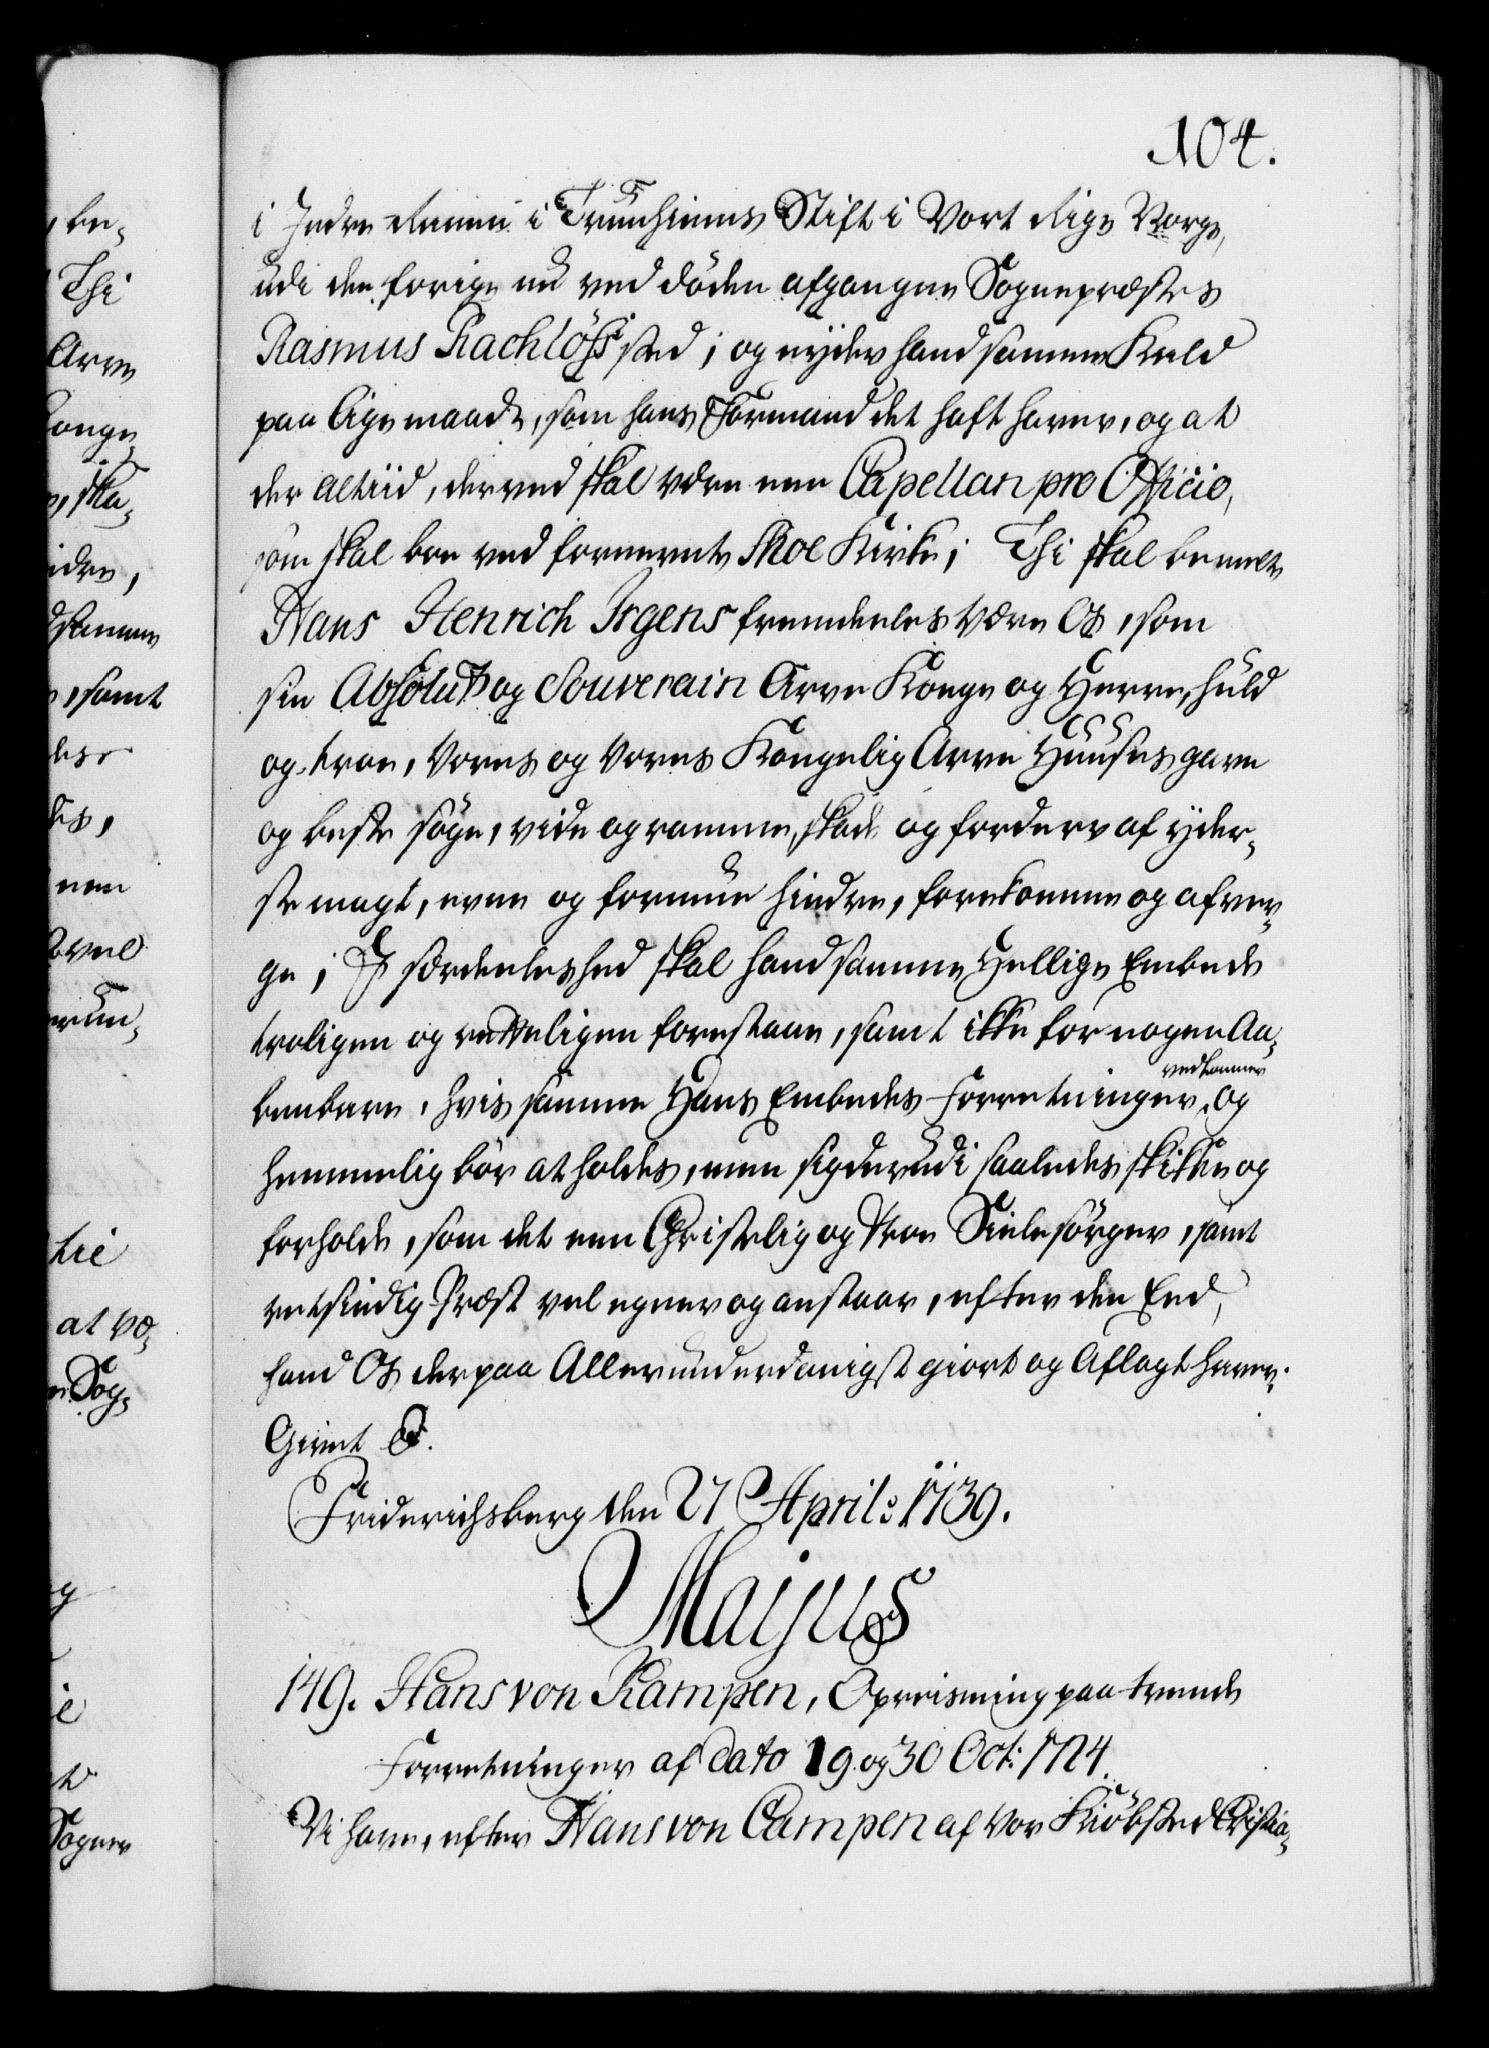 104.
i Indre Ranen i Trundhiems Stift i Vort Rige Norge,
udi den forige nu ved döden afgangne Sognepræstes
Rasmus Rachlöfs sted; og nyder hand samme Kald
paa lige maade, som hans Formand det haft haver, og at
der altiid, derved skal være een Capellan pro Officio,
som skal boe ved fornevnte Moe Kirke; Thi skal bemelte
Hans Henrich Irgens fremdeeles være Os, som
sin Absolut og Souverain Arve Konge og Herre, huld
og troe, Vores og Vores Kongelig Arve Huuses gavn
og beste söge, vide og ramme, skade og forderv af yder-
ste magt, evne og formue hindre, forekomme og afver-
ge; I særdeeleshed skal hand samme Hellige Embede
troligen og retteligen forestaae, samt ikke for nogen Aa-
benbare, hvis samme Hans Embedes Forretninger vedkommer og
hemmelig bör at holdes, men sig derudi saaledes skikke og
forholde, som det een Christelig og troe Sielesörger, samt
retsindig Præst vel egner og anstaar, efter den Eed,
hand Os derpaa Allerunderdanigst giort og Aflagt haver.
Givet &.
Friderichsberg den 27 April: 1739.
Majus
149. Hans von Kampen, Opreisning paa tvende
Forretninger af dato 19. og 30 Oct: 1724.
Vi have, efter Hans von Campen af Vor Kiöbsted Christia-